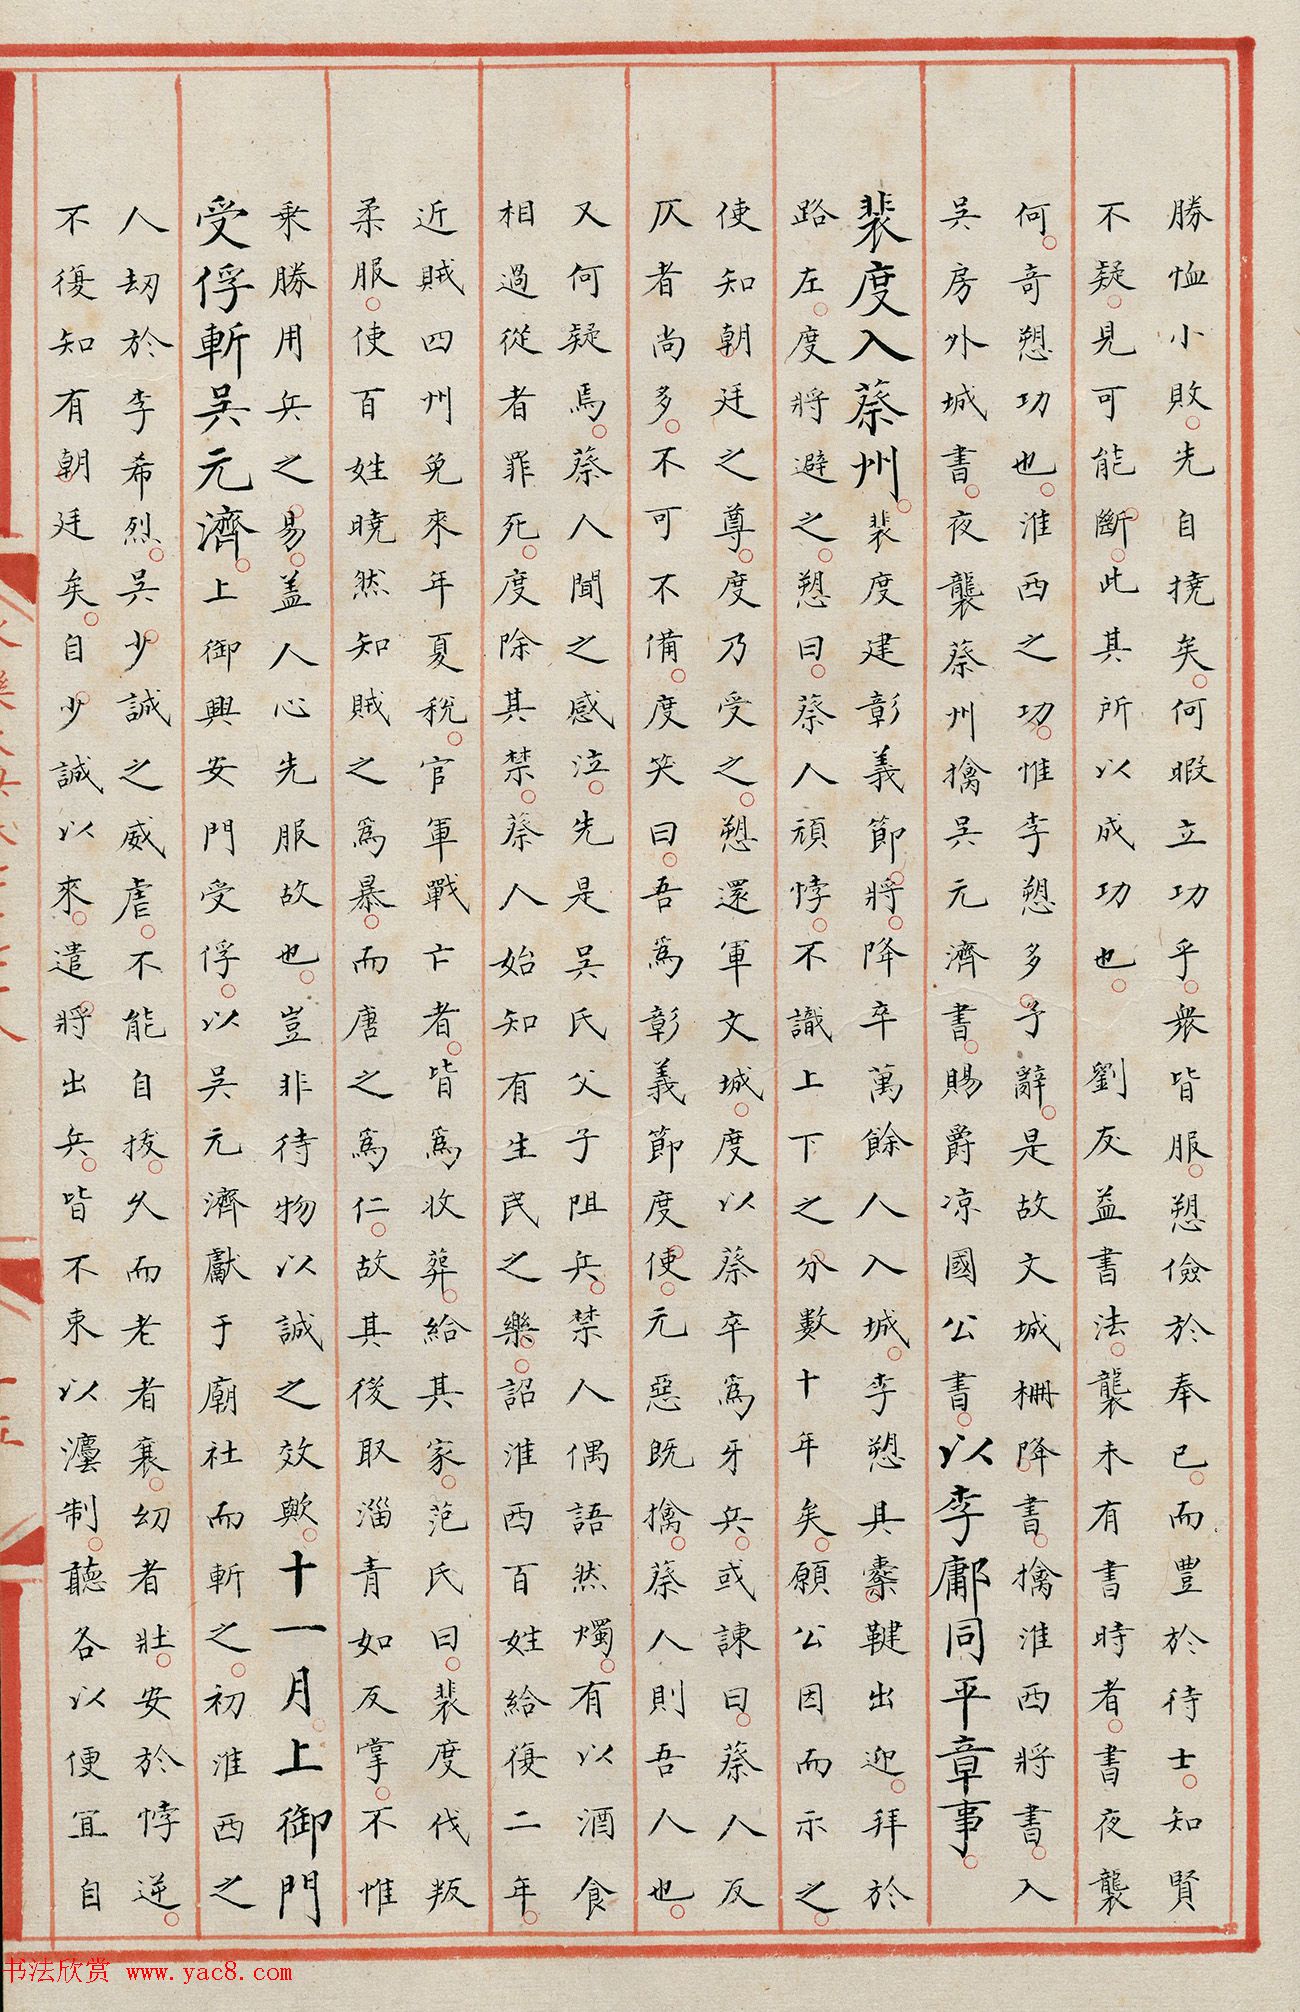 勝恤小敗先自撓矣何暇立功乎衆皆服愬儉於奉已而豐於待士知賢
不疑見可能斷此其所以成功也 劉友益書法襲未有書時者書夜襲
何奇愬功也淮西之功惟李愬多予辭是故文城柵降書擒淮西將書入
吳房外城書夜襲蔡州擒吳元濟書賜爵凉國公書以李鄘同平章事
裴度入蔡州裴度建彰義節將降卒萬餘人入城李愬具櫜鞬出迎拜於
路左度將避之愬曰蔡人頑悖不識上下之分數十年矣願公因而示之
使知朝廷之尊度乃受之愬還軍文城度以蔡卒爲牙兵或諫曰蔡人反
仄者尚多不可不備度笑曰吾爲彰義節度使元惡既擒蔡人則吾人也
又何疑焉蔡人聞之感泣先是吳氏父子阻兵禁人偶語然燭有以酒食
相過從者罪死度除其禁蔡人始知有生民之樂詔淮西百姓給復二年
近賊四州免來年夏稅官軍戰亡者皆爲收葬給其家范氏曰裴度伐叛
柔服使百姓曉然知賊之爲暴而唐之爲仁故其後取淄青如反掌不惟
乘勝用兵之易盖人心先服故也豈非待物以誠之效歟十一月上御門
受俘斬吳元濟上御興安門受俘以吳元濟獻于廟社而斬之初淮西之
人劫於李希烈吳少誠之威虐不能自拔久而老者衰幼者壯安於悖逆
不復知有朝廷矣自少誠以來遣將出兵皆不束以灋制聽各以便宜自
書法欣赏 www.yac8.com